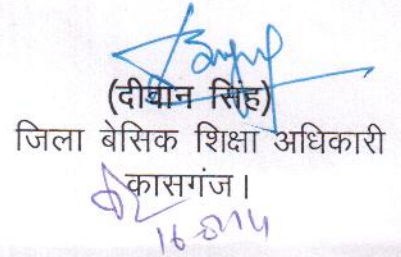 (दीवान सिंह)
जिला बेसिक शिक्षा अधिकारी
कासगंज।